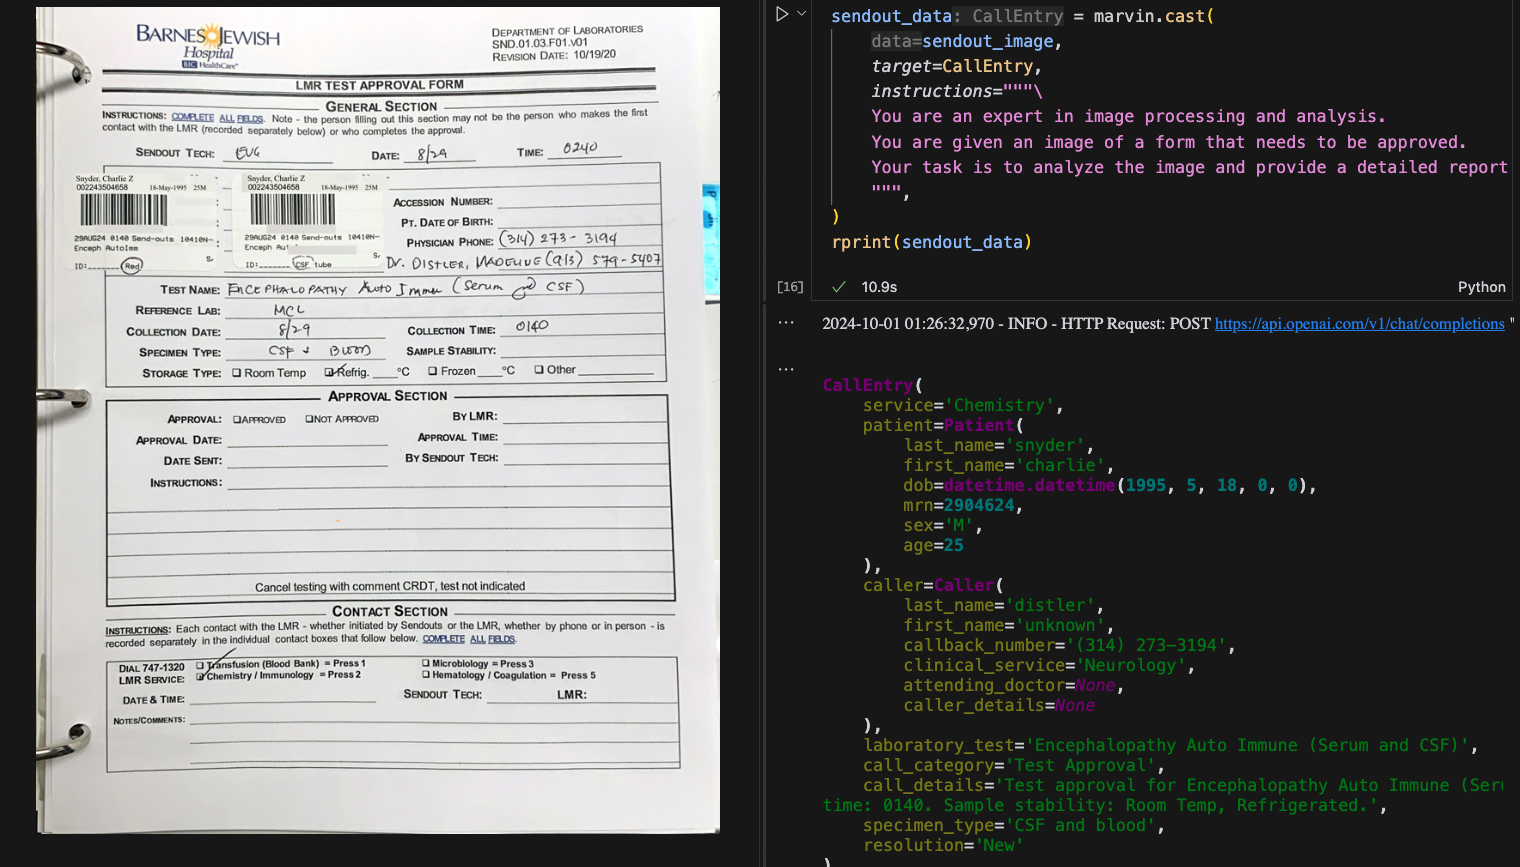 BARNES JEWISH
Hospital
BJC HealthCare™
DEPARTMENT OF LABORATORIES
SND.01.03.F01.V01
REVISION DATE: 10/19/20
LMR TEST APPROVAL FORM
GENERAL SECTION
INSTRUCTIONS: COMPLETE ALL FIELDS. Note - the person filling out this section may not be the person who makes the first
contact with the LMR (recorded separately below) or who completes the approval.
SENDOUT TECH: EVG DATE: 8/29 TIME: 0240
Snyder, Charlie Z
002243504658 18-May-1995 25M
29AUG24 0140 Send-outs 10410N-
Enceph AutoImm
Sr
ID: Red
Snyder, Charlie Z
002243504658 18-May-1995 25M
29AUG24 0140 Send-outs 10410N-
Enceph Aut
ID: CSF tube
ACCESSION NUMBER:
PT. DATE OF BIRTH:
PHYSICIAN PHONE: (314) 273-3194
DR. DISTLER, MADELINE (913) 579-5407
TEST NAME: ENCEPHALOPATHY AUTO Immun (Serum and CSF)
REFERENCE LAB: MCL
COLLECTION DATE: 8/29 COLLECTION TIME: 0140
SPECIMEN TYPE: CSF + BLOOD SAMPLE STABILITY:
STORAGE TYPE: Room Temp Refrig. °C Frozen °C Other
APPROVAL SECTION
APPROVAL: APPROVED NOT APPROVED BY LMR:
APPROVAL DATE: APPROVAL TIME:
DATE SENT: BY SENDOUT TECH:
INSTRUCTIONS:
Cancel testing with comment CRDT, test not indicated
CONTACT SECTION
INSTRUCTIONS: Each contact with the LMR - whether initiated by Sendouts or the LMR, whether by phone or in person - is
recorded separately in the individual contact boxes that follow below. COMPLETE ALL FIELDS.
DIAL 747-1320 Transfusion (Blood Bank) = Press 1 Microbiology = Press 3
LMR SERVICE: Chemistry / Immunology = Press 2 Hematology / Coagulation = Press 5
SENDOUT TECH: LMR:
DATE & TIME:
NOTES/COMMENTS:
sendout_data: CallEntry = marvin.cast(
data=sendout_image,
target=CallEntry,
instructions="""\
You are an expert in image processing and analysis.
You are given an image of a form that needs to be approved.
Your task is to analyze the image and provide a detailed report
""",
)
rprint(sendout_data)
[16] ✓ 10.9s Python
... 2024-10-01 01:26:32,970 - INFO - HTTP Request: POST https://api.openai.com/v1/chat/completions "
...
CallEntry(
service='Chemistry',
patient=Patient(
last_name='snyder',
first_name='charlie',
dob=datetime.datetime(1995, 5, 18, 0, 0),
mrn=2904624,
sex='M',
age=25
),
caller=Caller(
last_name='distler',
first_name='unknown',
callback_number='(314) 273-3194',
clinical_service='Neurology',
attending_doctor=None,
caller_details=None
),
laboratory_test='Encephalopathy Auto Immune (Serum and CSF)',
call_category='Test Approval',
call_details='Test approval for Encephalopathy Auto Immune (Seru
time: 0140. Sample stability: Room Temp, Refrigerated.',
specimen_type='CSF and blood',
resolution='New'
)